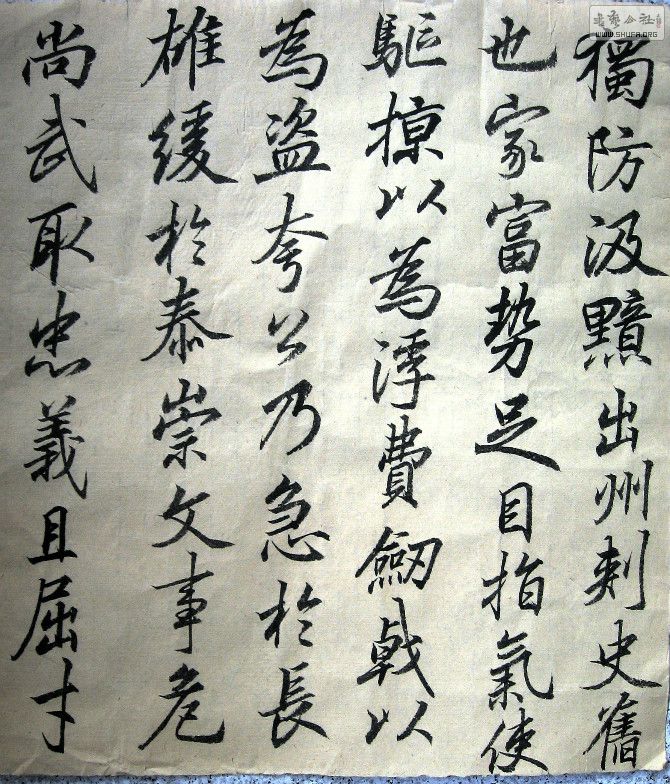 獨防汲黯出州刺史舊
也家富勢足目指氣使
駈掠以為浮費劔戟以
為盗夸公乃急於長
雄緩於泰崇文事危
尚武取忠義且屈才
WWW.SHUFA.ORG